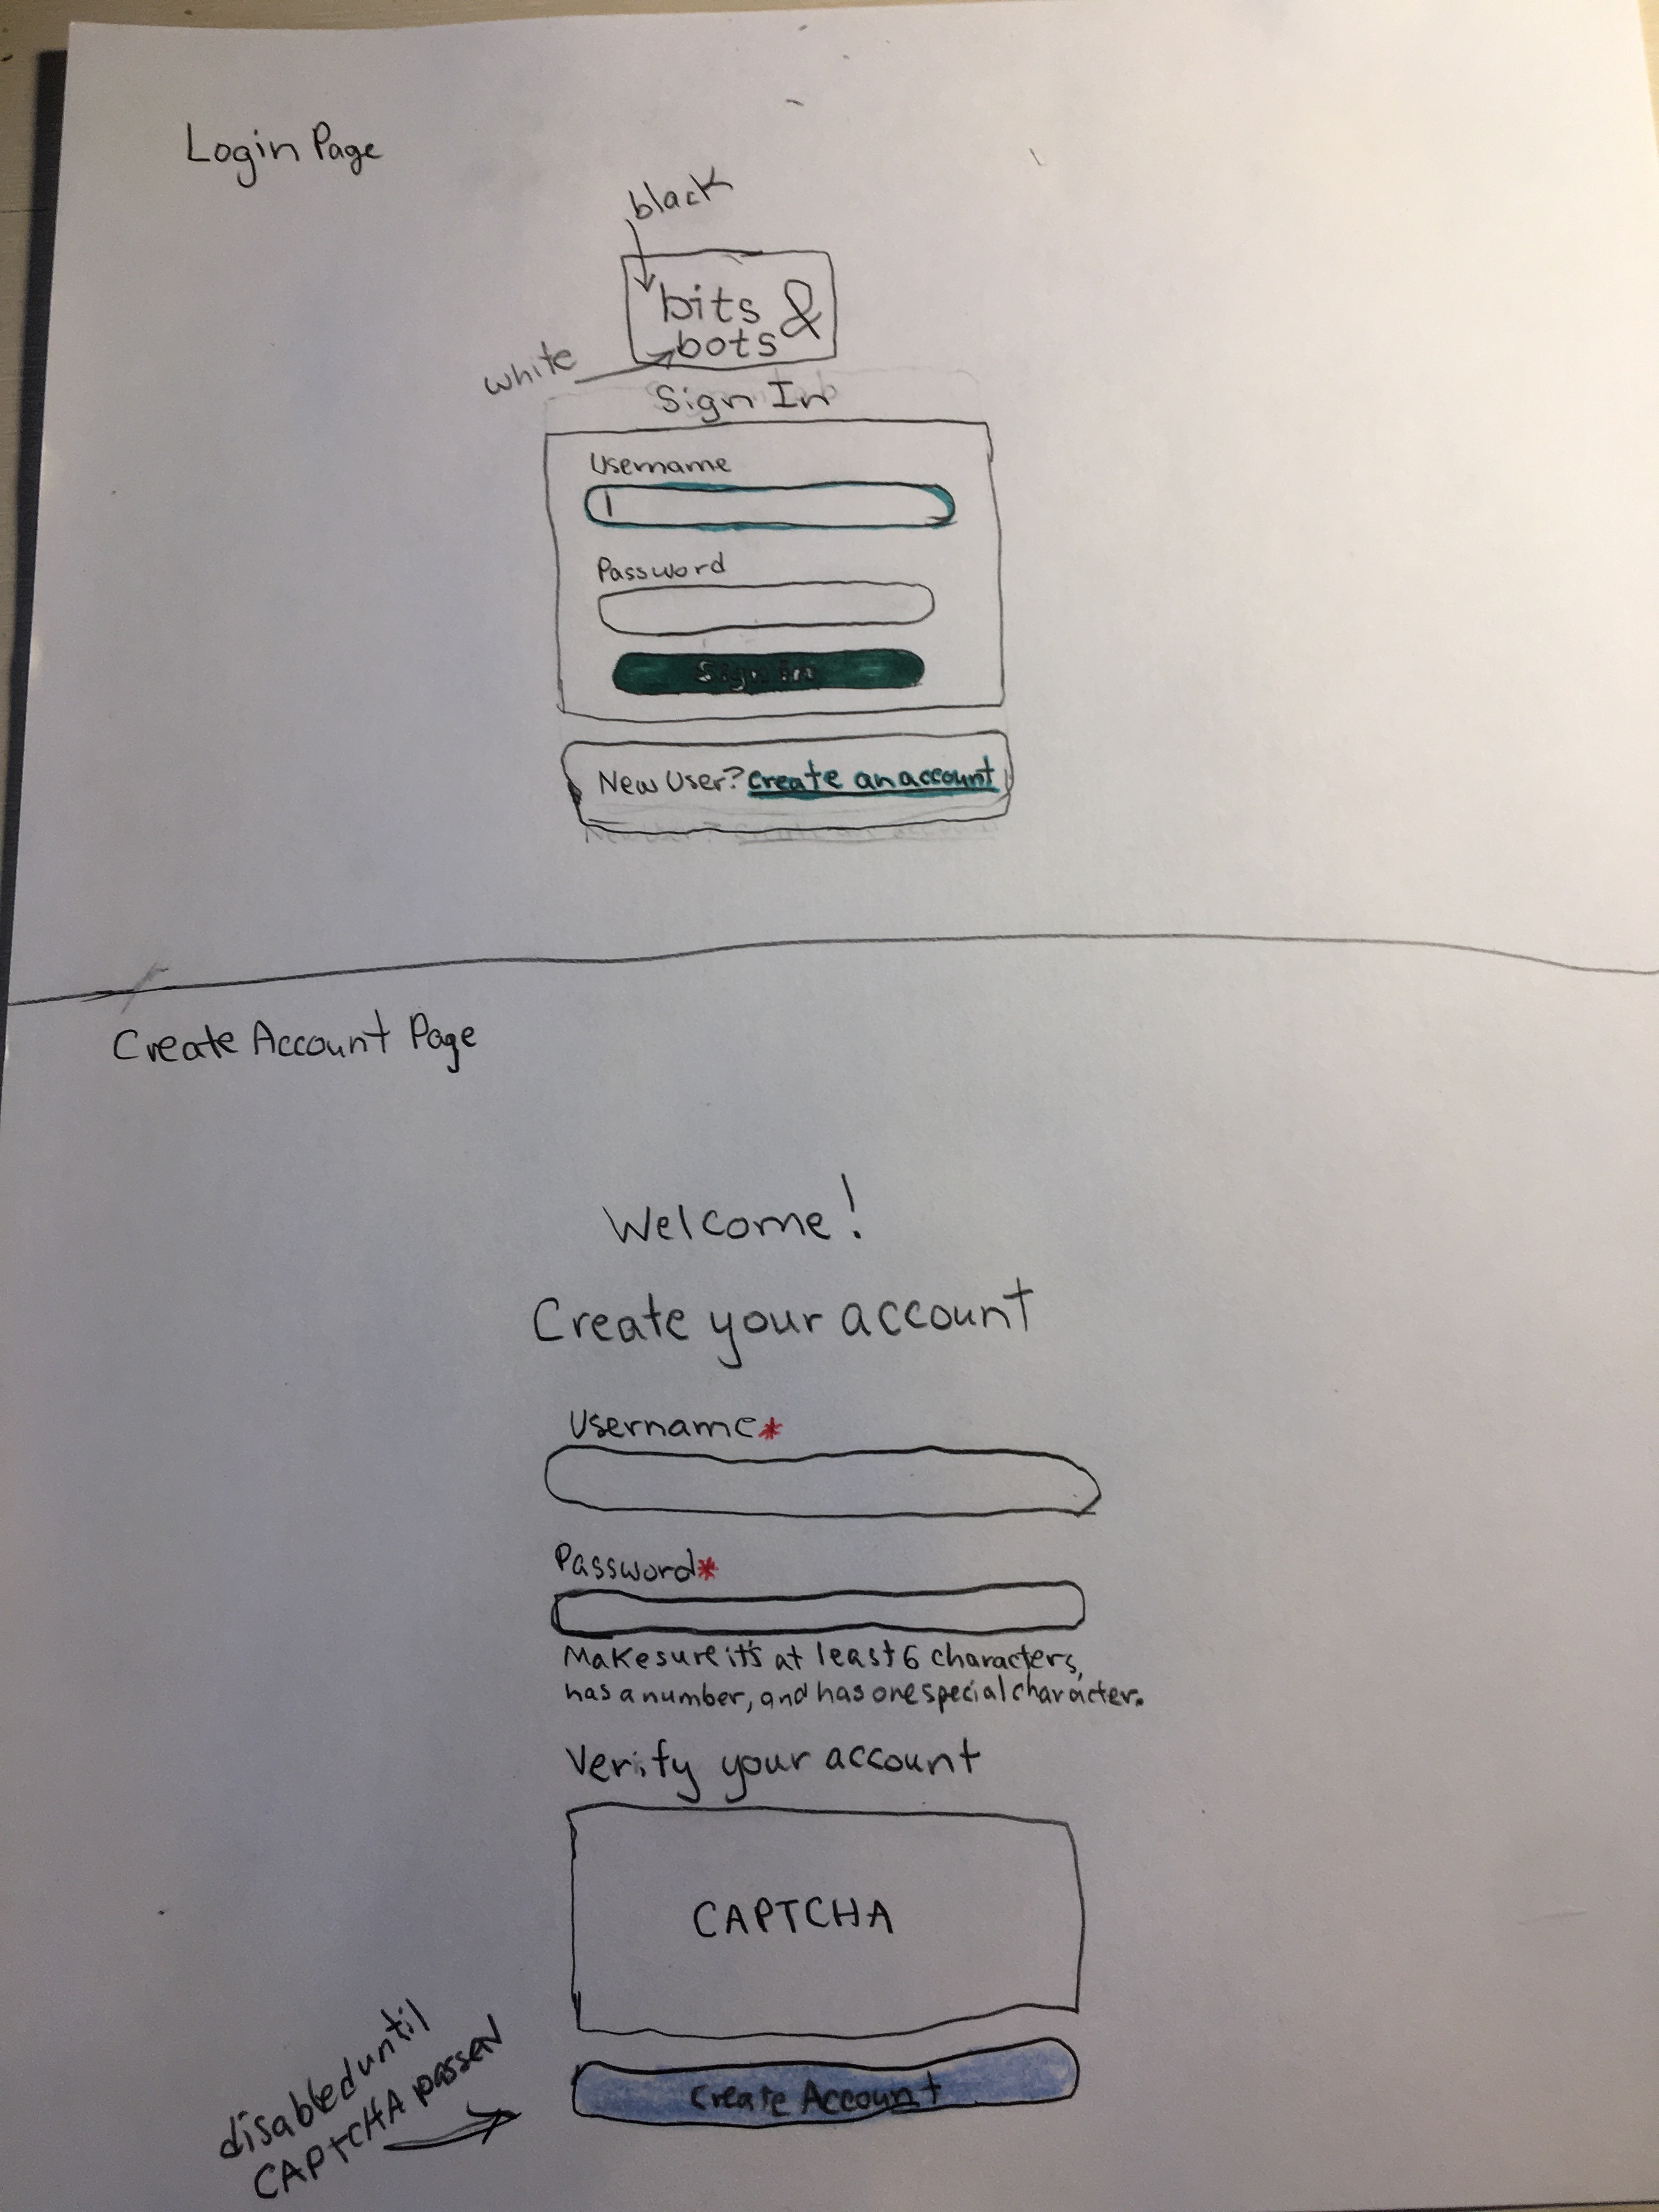 Login Page
black
bits &
bots
white
Sign In
Username
Password
Sign in
New User? Create an account
Create Account Page
Welcome!
Create your account
Username*
Password*
Make sure it's at least 6 characters,
has a number, and has one special character.
Verify your account
CAPTCHA
disabled until
CAPTCHA passed
Create Account